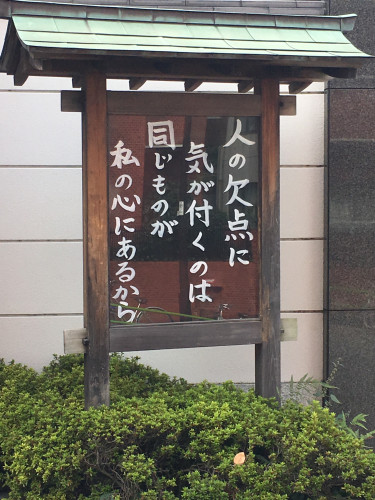 人の欠点に
気が付くのは
同じものが
私の心にあるから